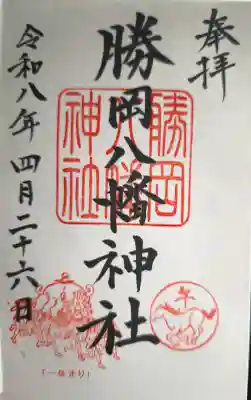 奉拝
勝岡八幡神社
勝岡
八幡
神社
午
令和八年四月二十六日